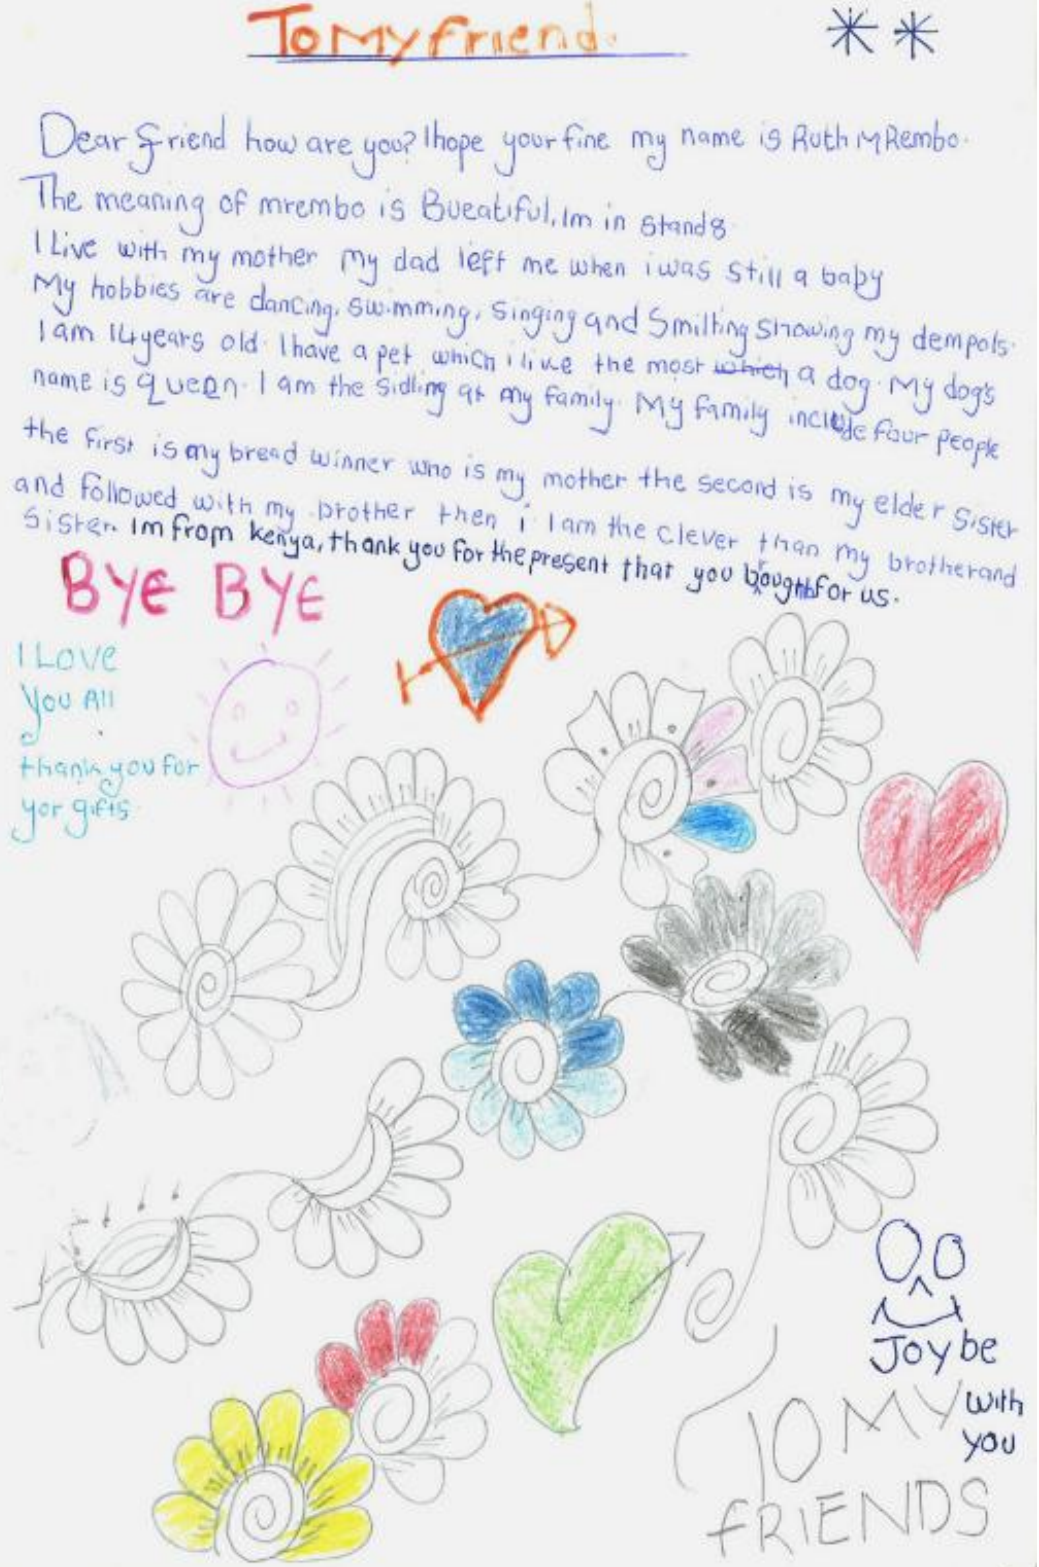 To My friend.
Dear friend how are you? I hope your fine my name is Ruth MRembo.
The meaning of mrembo is Bueatiful. Im in stand 8
I Live with my mother my dad left me when i was still a baby
My hobbies are dancing, swimming, singing and Smilting showing my dempols.
I am 14 years old. I have a pet which i like the most which a dog. My dog's
name is queen. I am the sidling at my family. My family include four people
the first is my bread winner who is my mother the second is my elder sister
and followed with my brother then i I am the clever than my brother and
sister. Im from kenya, thank you for the present that you bought for us.
BYE BYE
I LOVE
You All
thank you for
yor gifts
Joy be
with
you
TO MY
fRIENDS